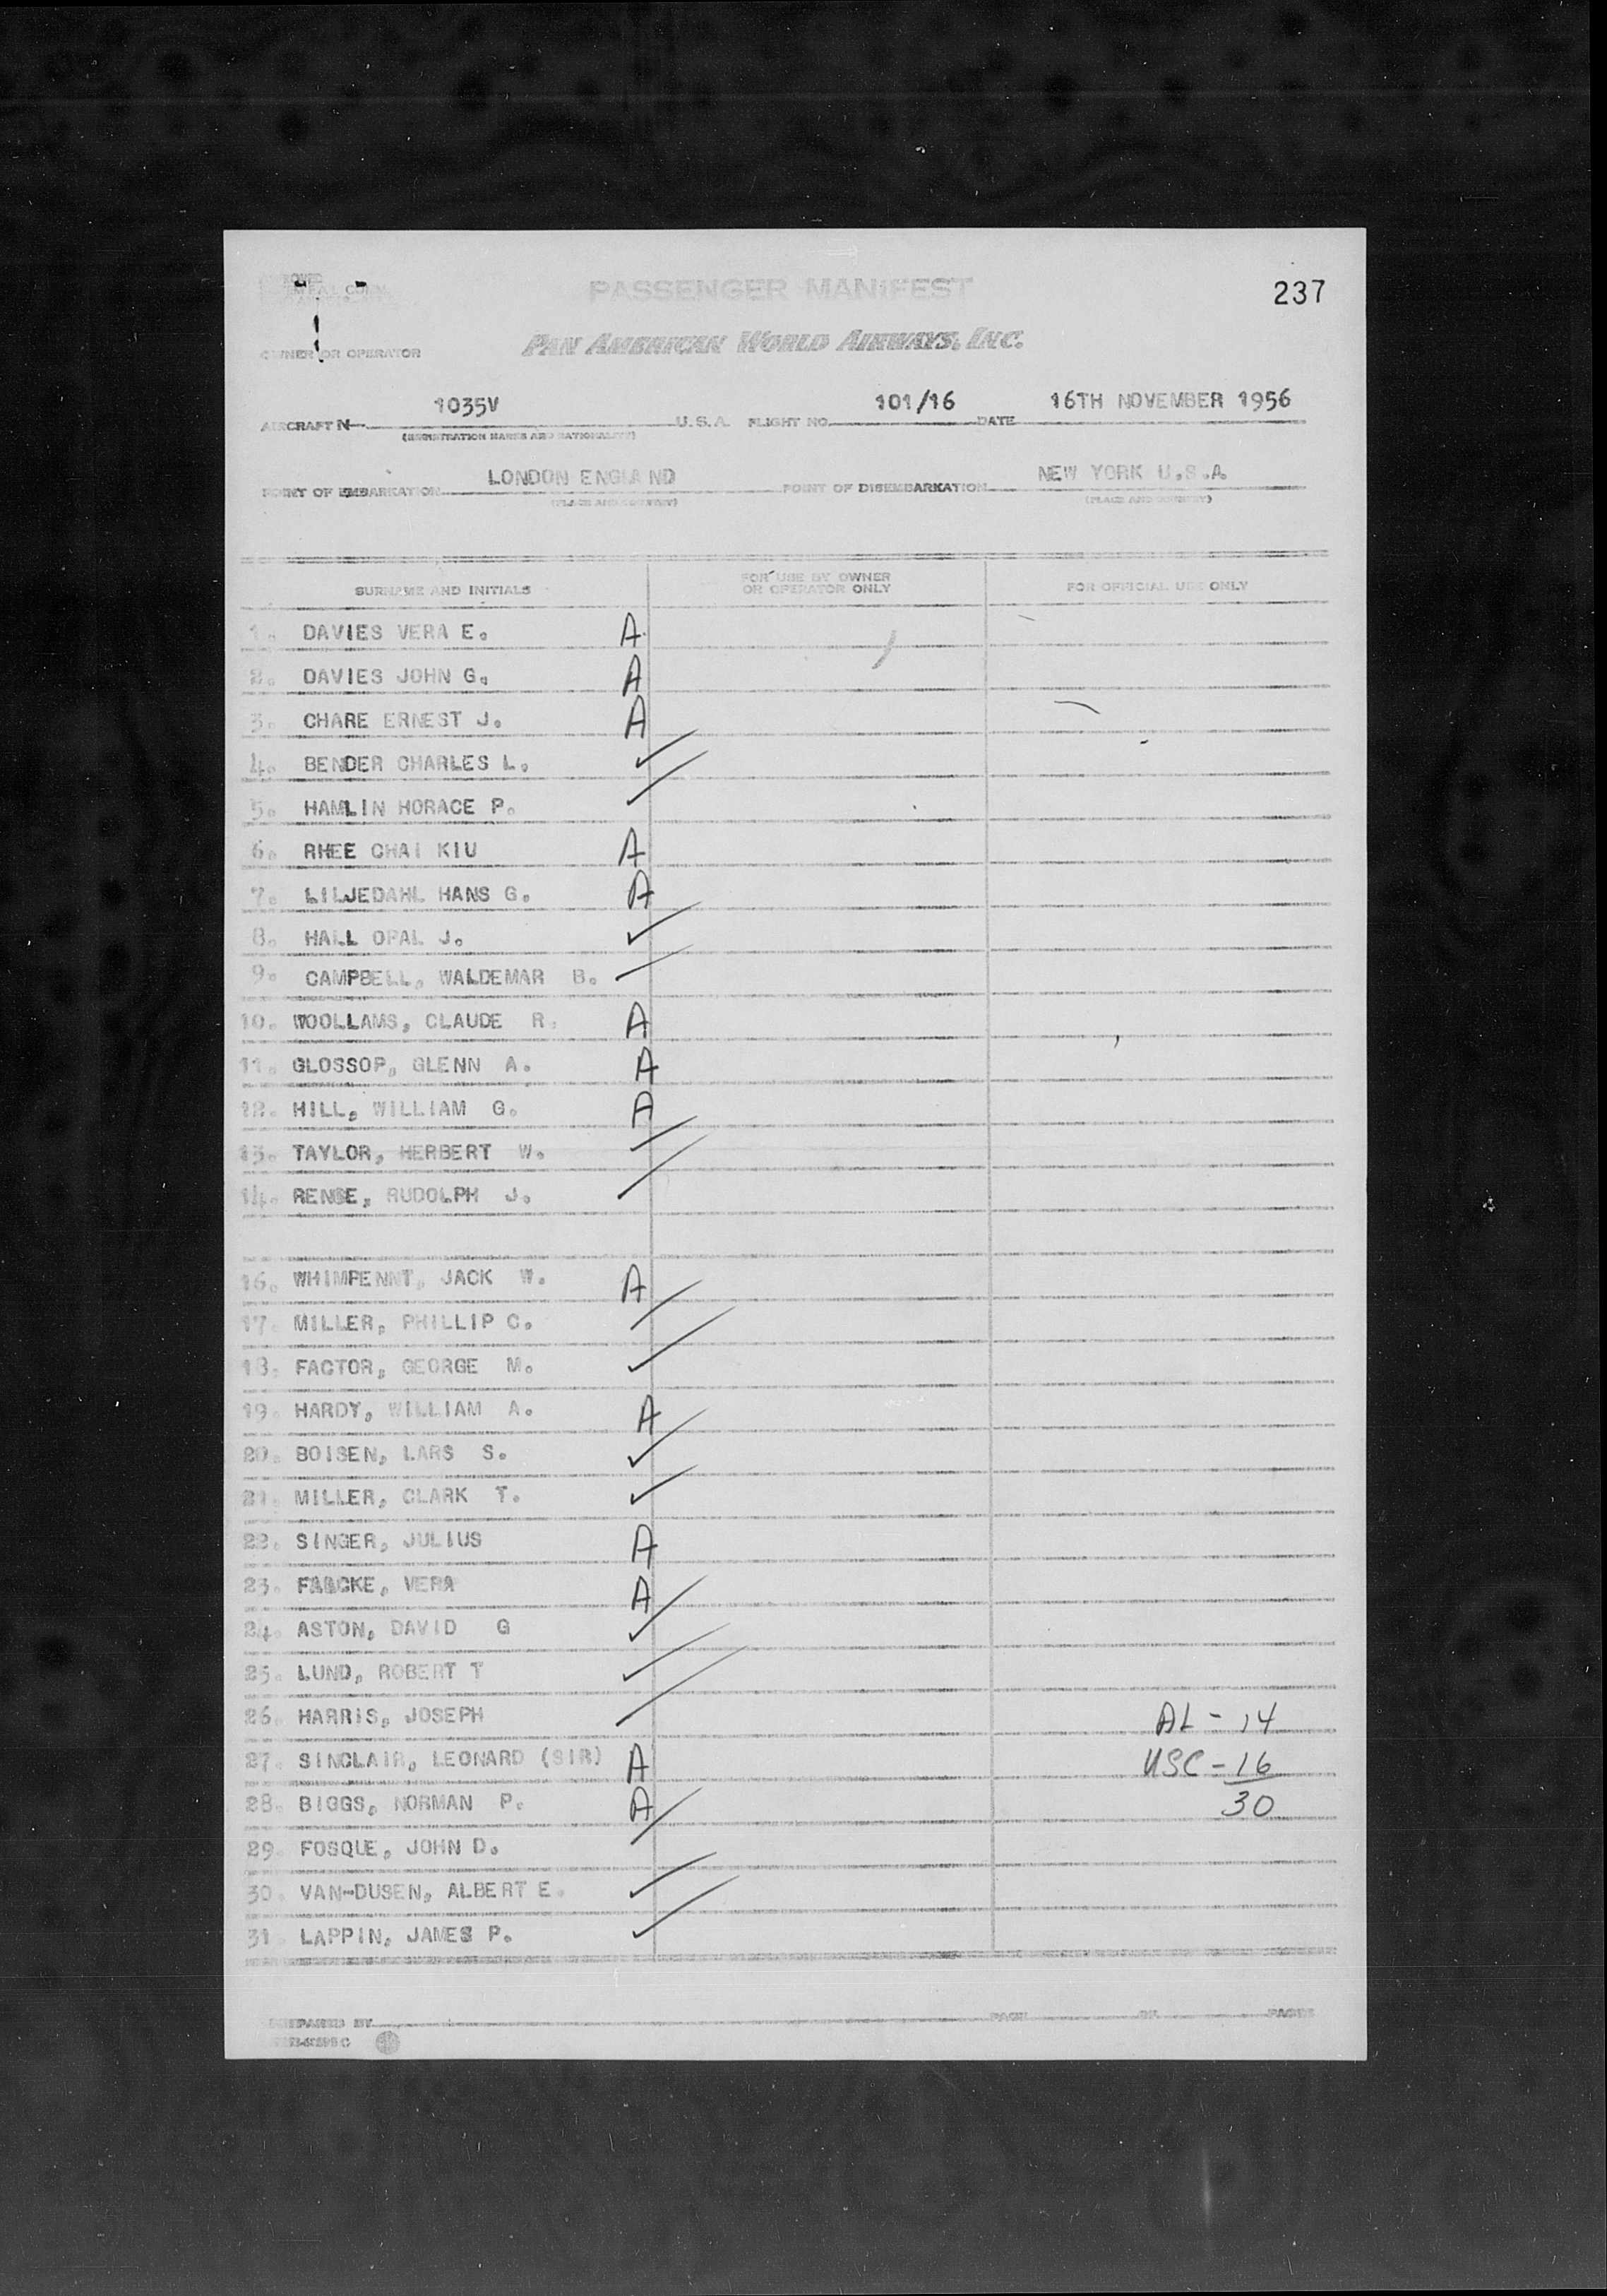 PASSENGER MANIFEST
237
OWNER OR OPERATOR PAN AMERICAN WORLD AIRWAYS, INC.
AIRCRAFT N 1035V U.S.A. FLIGHT NO. 101/16 DATE 16TH NOVEMBER 1956
(REGISTRATION MARKS AND NATIONALITY)
POINT OF EMBARKATION LONDON ENGLAND POINT OF DISEMBARKATION NEW YORK U.S.A.
(PLACE AND COUNTRY) (PLACE AND COUNTRY)
SURNAME AND INITIALS FOR USE BY OWNER OR OPERATOR ONLY FOR OFFICIAL USE ONLY
1. DAVIES VERA E. A
2. DAVIES JOHN G. A
3. CHARE ERNEST J. A
4. BENDER CHARLES L. ✓
5. HAMLIN HORACE P. ✓
6. RHEE CHAI KIU A
7. LILJEDAHL HANS G. A
8. HALL OPAL J. ✓
9. CAMPBELL, WALDEMAR B. ✓
10. WOOLLAMS, CLAUDE R. A
11. GLOSSOP, GLENN A. A
12. HILL, WILLIAM G. A
13. TAYLOR, HERBERT W. ✓
14. RENSE, RUDOLPH J. ✓
16. WHIMPENNT, JACK W. A
17. MILLER, PHILLIP C. ✓
18. FACTOR, GEORGE M. ✓
19. HARDY, WILLIAM A. A
20. BOISEN, LARS S. ✓
21. MILLER, CLARK T. ✓
22. SINGER, JULIUS A
23. VERA A
24. ASTON, DAVID G ✓
25. LUND, ROBERT T ✓
26. HARRIS, JOSEPH ✓ AL - 14
27. SINCLAIR, LEONARD (SIR) A USC - 16
28. BIGGS, NORMAN P. A 30
29. FOSQUE, JOHN D. ✓
30. VAN-DUSEN, ALBERT E. ✓
31. LAPPIN, JAMES P. ✓
PREPARED BY PAGE OF PAGES